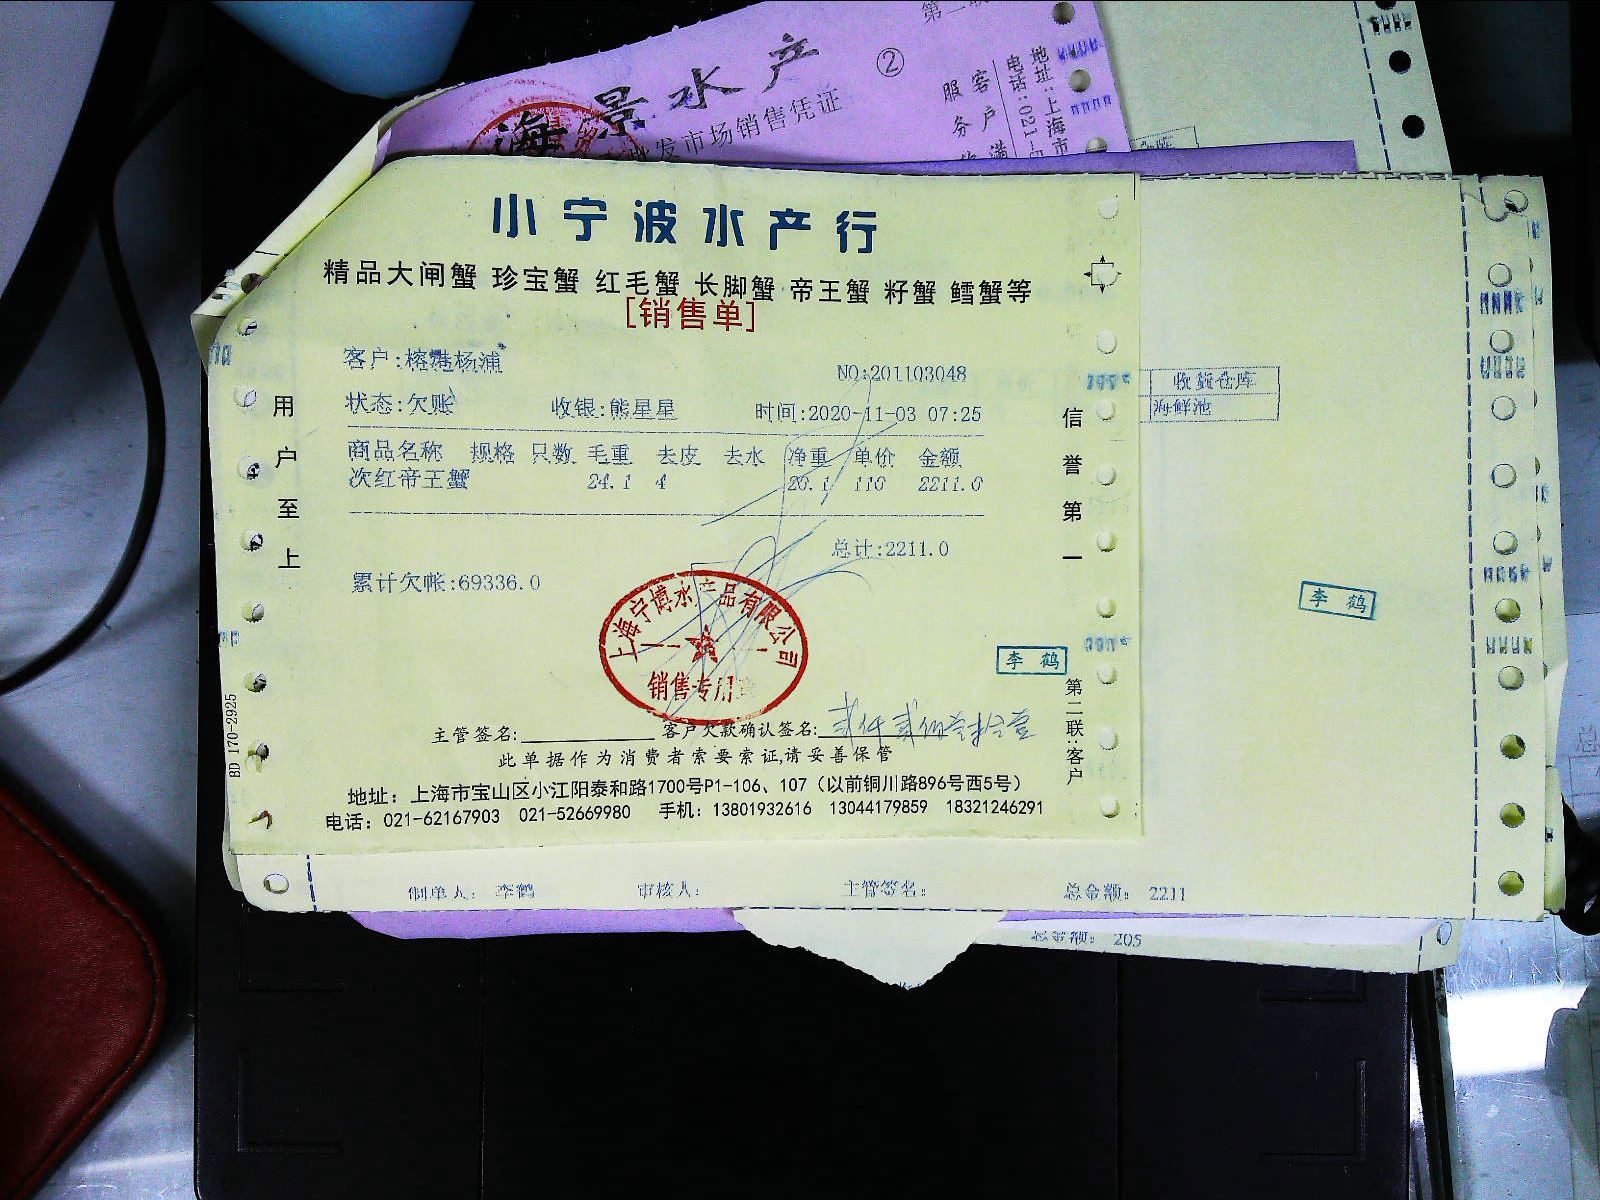 第二联
海景水产
②
批发市场销售凭证
客户
服务
地址:上海市
电话:021-5
小宁波水产行
精品大闸蟹 珍宝蟹 红毛蟹 长脚蟹 帝王蟹 籽蟹 鳕蟹等
[销售单]
客户:榕港杨浦
NO:201103048
状态:欠账 收银:熊星星 时间:2020-11-03 07:25
商品名称 规格 只数 毛重 去皮 去水 净重 单价 金额
次红帝王蟹 24.1 4 20.1 110 2211.0
总计:2211.0
累计欠帐:69336.0
上海宁博水产品有限公司
销售专用章
李鹤
主管签名: 客户欠款确认签名:
此单据作为消费者索要索证,请妥善保管
地址：上海市宝山区小江阳泰和路1700号P1-106、107（以前铜川路896号西5号）
电话：021-62167903 021-52669980 手机：13801932616 13044179859 18321246291
用户至上
信誉第一
第二联:客户
BD 170-2925
收货仓库
海鲜池
李鹤
制单人：李鹤 审核人： 主管签名： 总金额：2211
总金额：205